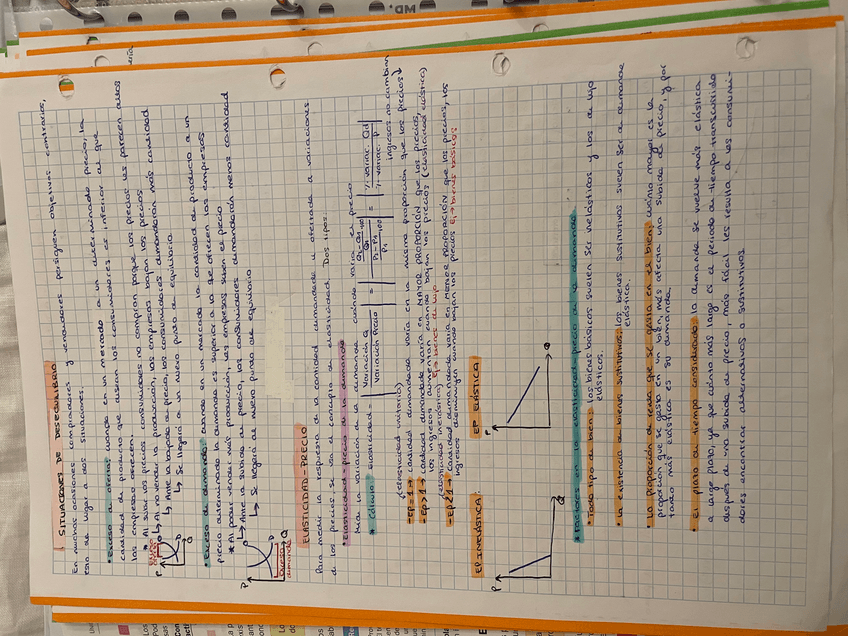 SITUACIONES DE DESEQUILIBRIO
En muchas ocasiones, compradores y vendedores persiguen objetivos contrarios,
esto da lugar a dos situaciones.
• Exceso de oferta: cuando en un mercado a un determinado precio, la
cantidad de producto que desean los consumidores es inferior al que
las empresas ofrecen.
* Al subir los precios consumidores no compran porque los precios les parecen altos
↳ Al no vender la producción, las empresas bajan los precios
↳ Ante la bajada de precio, los consumidores demandarán más cantidad
↳ Se llegará a un nuevo punto de equilibrio.
P
O
D
Q
• Exceso de demanda: cuando en un mercado la cantidad de producto a un
precio determinado la demanda es superior a la que ofrecen las empresas
* Al poder vender más producción, las empresas suben el precio
↳ Ante la subida de precio, los consumidores demandarán menos cantidad
↳ Se llegará al nuevo punto de equilibrio
P
O
D
Q
Exceso
demanda
ELASTICIDAD-PRECIO
Para medir la respuesta de la cantidad demandada u ofertada a variaciones
de los precios, se usa el concepto de elasticidad. Dos tipos.
• Elasticidad-precio de la demanda
Mide la variación de la demanda cuando varía el precio
* Cálculo: Elasticidad = | Variación Q / Variación Precio | = | Q2-Q1/Q1 · 100 / P2-P1/P1 · 100 | = | % variac. Qd / % variac. P |
(elasticidad unitaria)
ingresos no cambian
-Ep=1 → cantidad demandada varía en la misma proporción que los precios
-Ep>1 → cantidad demandada varía en MAYOR PROPORCIÓN que los precios,
los ingresos aumentan cuando bajan los precios (elasticidad elástica)
(elasticidad inelástica) ej: bienes de lujo
-Ep<1 → cantidad demandada varía en menor PROPORCIÓN que los precios, los
ingresos disminuyen cuando bajan los precios Ej → bienes básicos
EP INELÁSTICA:
EP ELÁSTICA
P
Q
P
Q
* Factores en la elasticidad precio de la demanda
• Todo tipo de bien: los bienes básicos suelen ser inelásticos y los de lujo
elásticos.
• La existencia de bienes sustitutivos: los bienes sustitutivos suelen ser de demanda
elástica.
• La proporción de renta que se gasta en el bien: cuánto mayor es la
proporción que se gasta en un bien, más afecta una subida de precio, y por
tanto más elástica es su demanda.
• El plazo de tiempo considerado: la demanda se vuelve más elástica
a largo plazo, ya que cuánto más largo es el periodo de tiempo transcurrido
después de una subida de precio, más fácil les resulta a los consumi-
dores encontrar alternativas o sustitutivos